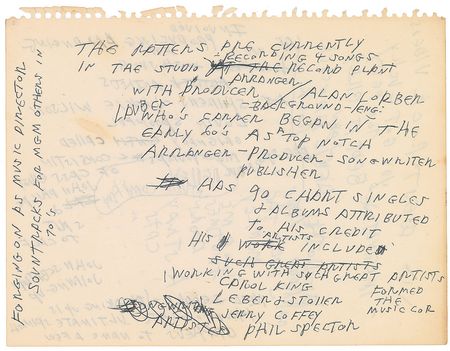 THE RATTERS ARE CURRENTLY
RECORDING 4 SONGS
IN THE STUDIO AT THE RECORD PLANT
ARRANGER
WITH PRODUCER / ALAN LORBER
BACKGROUND
WHO'S CAREER BEGAN IN THE
EARLY 60'S AS A TOP NOTCH
ARRANGER-PRODUCER-SONGWRITER
PUBLISHER
HAS 90 CHART SINGLES
& ALBUMS ATTRIBUTED
TO HIS CREDIT
ARTISTS
HIS WORK INCLUDE
SUCH GREAT ARTISTS
WORKING WITH SUCH GREAT ARTISTS
CAROL KING
LEBER & STOLLER
JERRY COFFEY
PHIL SPECTOR
FORMED
THE
MUSIC COR
ARTISTS
FORGING ON AS MUSIC DIRECTOR
SOUNTRACKS FOR MGM OTHERS IN
70'S